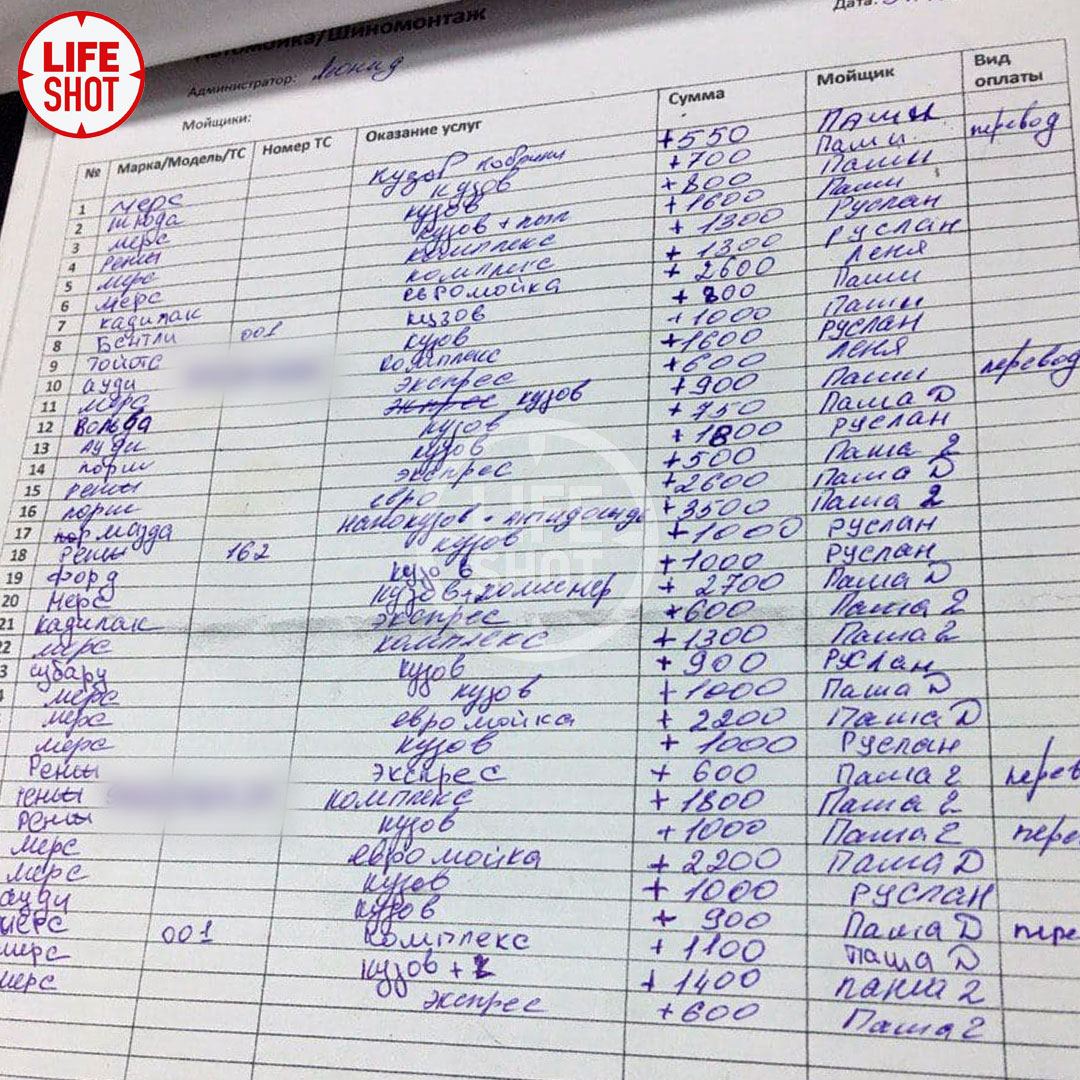 LIFE
SHOT
Автомойка/Шиномонтаж
Дата:
Администратор: Леонид
Мойщики:
№ Марка/Модель/ТС Номер ТС Оказание услуг Сумма Мойщик Вид оплаты
1 мерс кузов +550 Паши перевод
2 шкода кузов +700 Паши
3 мерс кузов +800 Паши
4 Ренжы кузов + пыл +1600 Паши
5 мерс комплекс +1300 Руслан
6 мерс комплекс +1300 Руслан
7 кадилак евромойка +2600 Леня
8 Бентли 001 кузов +800 Паши
9 Тойота кузов +1000 Паши
10 ауди комплекс +1600 Руслан
11 мерс экспрес +600 Леня
12 Вольва экпрес кузов +900 Паши перевод
13 Ауди кузов +750 Паша D
14 порш кузов +1800 Руслан
15 Ренжы экспрес +500 Паша 2
16 порш евро +2600 Паша D
17 мазда нанокузов + антидождь +3500 Паша 2
18 Ренжы 162 кузов +1000 Руслан
19 Форд кузов +1000 Руслан
20 мерс кузов + полимер +2700 Паша D
21 кадилак экспрес +600 Паша 2
22 мерс комплекс +1300 Паша 2
3 субару кузов +900 Руслан
мерс кузов +1000 Паша D
мерс евромойка +2200 Паша D
мерс кузов +1000 Руслан
Ренжы экспрес +600 Паша 2 перев
Ренжы комплекс +1800 Паша 2
Ренжы кузов +1000 Паша 2 пере
мерс евромойка +2200 Паша D
мерс кузов +1000 Руслан
ауди кузов +900 Паша D пере
мерс 001 комплекс +1100 Паша D
мерс кузов + +1400 паша 2
мерс экспрес +600 Паша 2
LIFE
SHOT